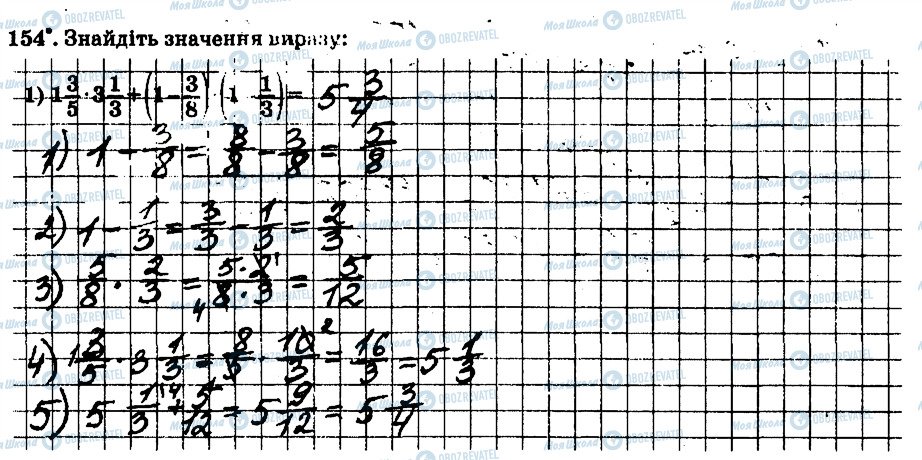 154°. Знайдіть значення виразу:
1) 1 3/5 · 3 1/3 + (1 - 3/8) · (1 - 1/3) = 5 3/4
1) 1 - 3/8 = 8/8 - 3/8 = 5/8
2) 1 - 1/3 = 3/3 - 1/3 = 2/3
3) 5/8 · 2/3 = 5·2/8·3 = 5/12
4) 1 3/5 · 3 1/3 = 8/5 · 10/3 = 16/3 = 5 1/3
5) 5 1/3 + 5/12 = 5 9/12 = 5 3/4
Моя Школа OBOZREVATEL